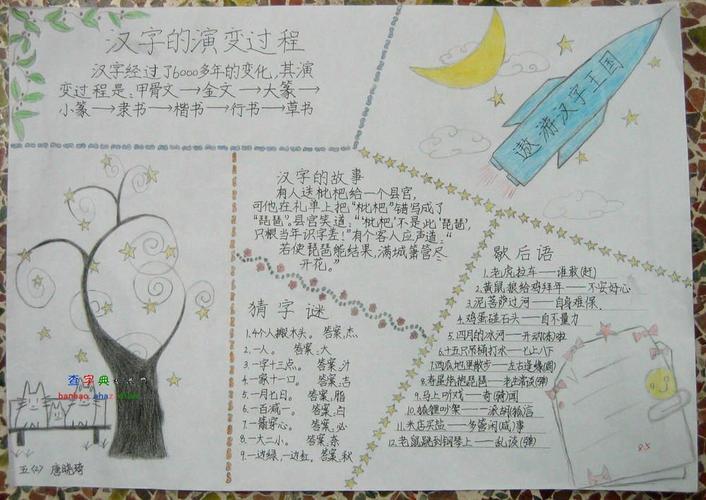 汉字的演变过程
汉字经过了6000多年的变化,其演
变过程是:甲骨文→金文→大篆→
小篆→隶书→楷书→行书→草书
遨游汉字王国
汉字的故事
有人送枇杷给一个县官,
可他在礼单上把“枇杷”错写成了
“琵琶”。县官笑道:“‘枇杷’不是此‘琵琶’,
只恨当年识字差!”有个客人应声道:“
若使琵琶能结果,满城箫管尽
开花。”
猜字谜
1.4个人搬木头。 答案:杰
2.一人。 答案:大
3.一字十三点。 答案:汁
4.一家十一口。 答案:吉
5.一月七日。 答案:脂
6.一百减一。 答案:白
7.一箭穿心。 答案:必
8.一大二小。 答案:奈
9.一边绿,一边红。 答案:秋
歇后语
1.老虎拉车——谁敢(赶)
2.黄鼠狼给鸡拜年——不安好心
3.泥菩萨过河——自身难保
4.鸡蛋碰石头——自不量力
5.四月的冰河——开动(冻)啦
6.十五只吊桶打水——七上八下
7.西瓜地里散步——左右逢缘(圆)
8.寿星弹琵琶——老生常谈(弹)
9.马上听戏——奇(骑)闻
10.狐狸吵架——一派胡(狐)言
11.米店买盐——多管闲(咸)事
12.老鼠跳到钢琴上——乱谈(弹)
查字典
五(2) 唐晓琦